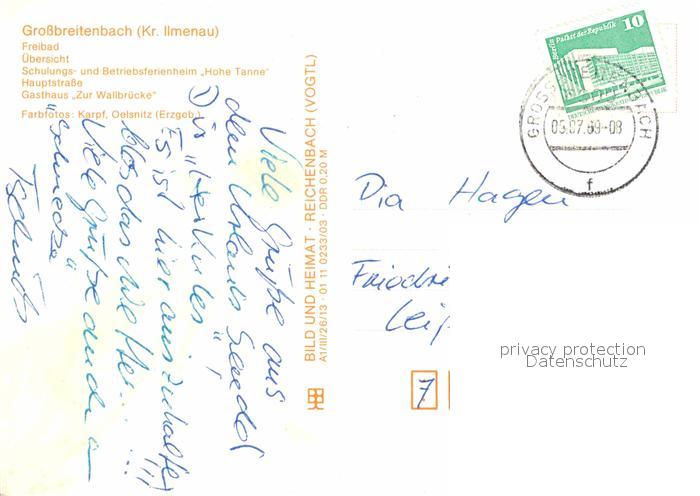 Großbreitenbach (Kr. Ilmenau)
Freibad
Übersicht
Schulungs- und Betriebsferienheim „Hohe Tanne"
Hauptstraße
Gasthaus „Zur Wallbrücke"
Farbfotos: Karpf, Oelsnitz (Erzgeb.)
Viele Grüße aus
dem Urlaub
in
Es ist hier auszuhalten
blos das Wetter....!!!
Viele Grüße auch a
BILD UND HEIMAT · REICHENBACH (VOGTL)
A1/III/26/13 · 01 11 0233/03 · DDR 0,20 M
Berlin, Palast der Republik
10
03.07.89-08
f
Dia Hagen
Friedri
Leip
7
privacy protection
Datenschutz